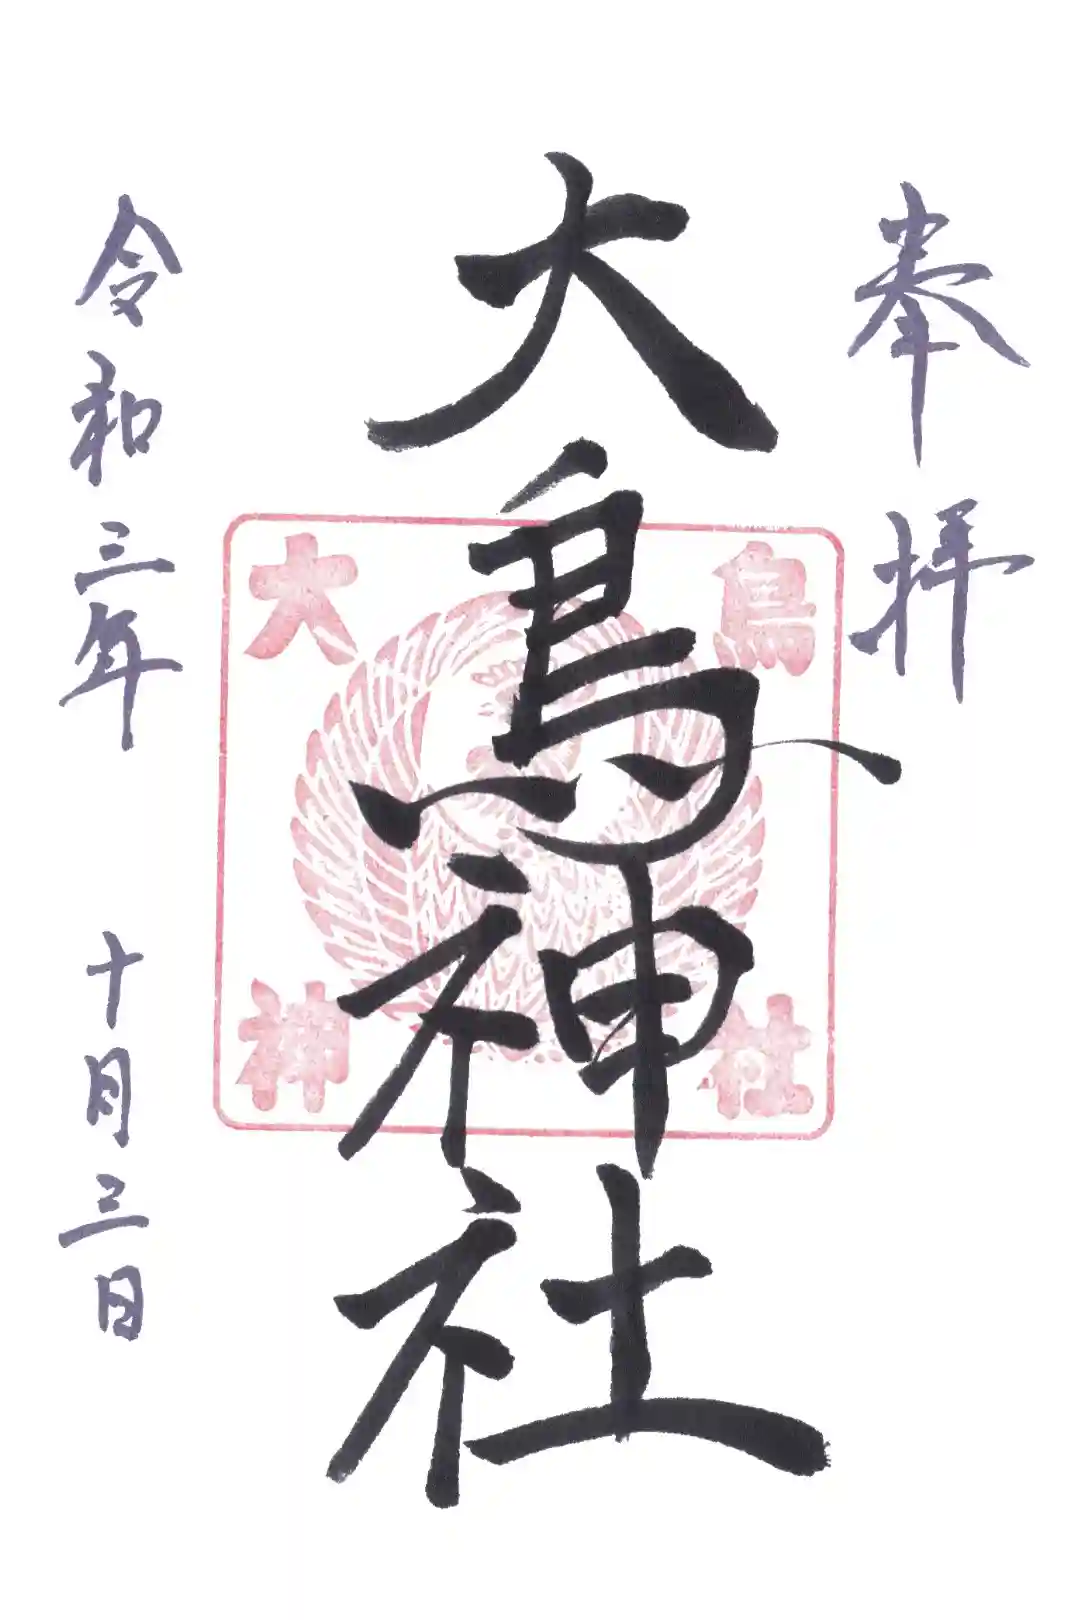 奉拝
大鳥神社
大鳥
神社
令和三年 十月三日